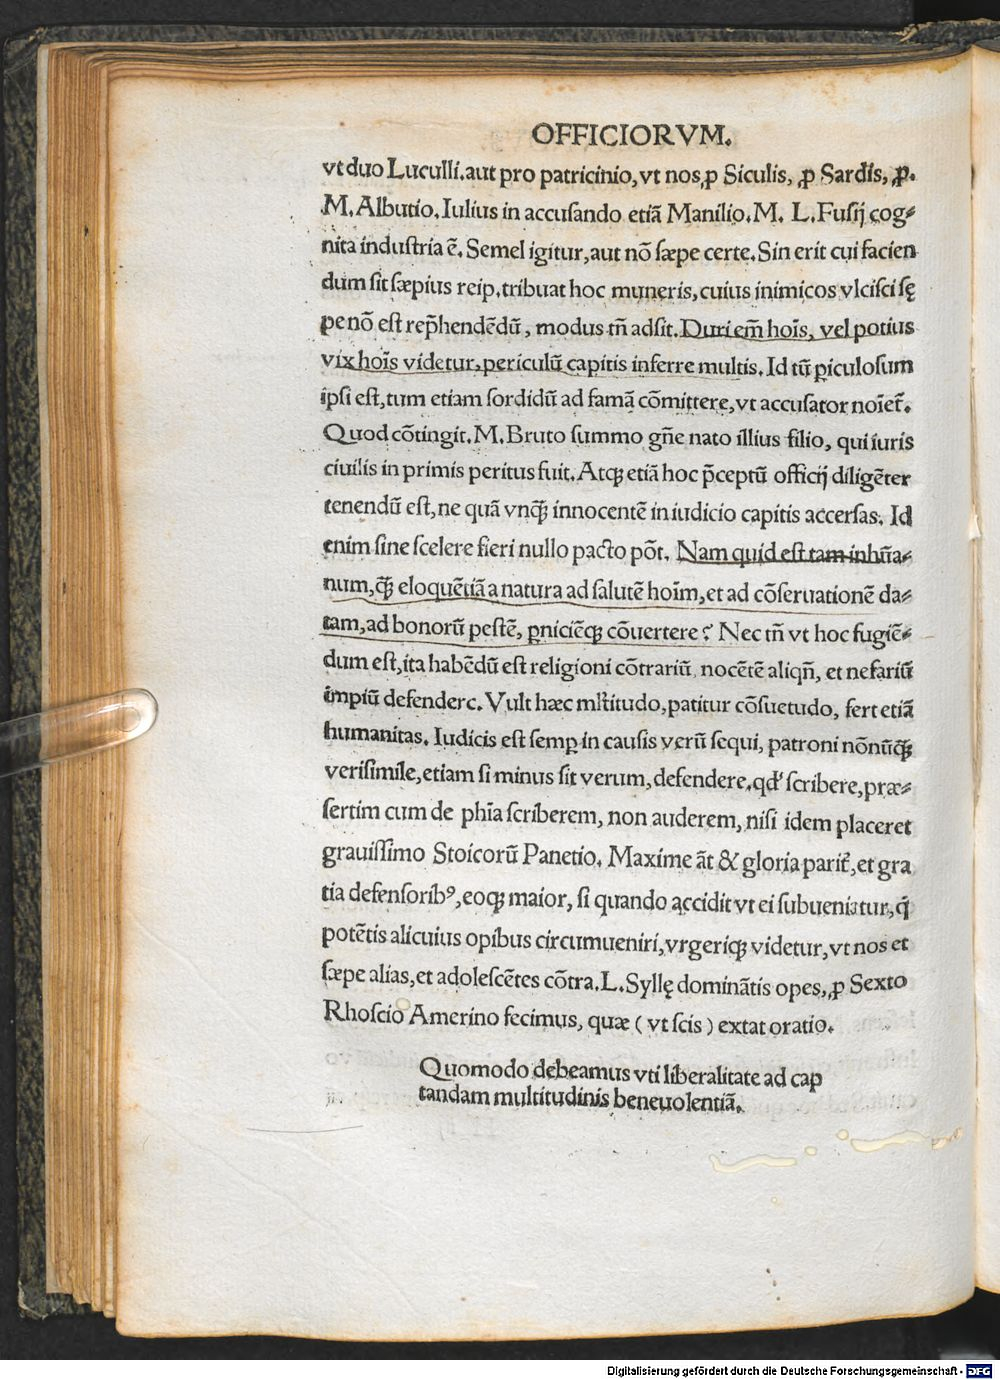 OFFICIORVM.
vt duo Luculli.aut pro patricinio,vt nos,ꝓ Siculis, ꝓ Sardis, ꝓ.
M.Albutio.Iulius in accusando etiã Manilio.M. L.Fusij cog⸗
nita industria ẽ. Semel igitur,aut nõ sæpe certe.Sin erit cui facien
dum sit sæpius reip.tribuat hoc muneris,cuius inimicos vlcisci sę
pe nõ est rep̃hendẽdũ, modus tñ adsit.Duri em̃ hoĩs, vel potius
vix hoĩs videtur,periculũ capitis inferre multis. Id tũ ꝑiculosum
ipsi est,tum etiam sordidũ ad famã cõmittere,vt accusator noĩet̃.
Quod cõtingit.M.Bruto summo gñe nato illius filio, qui iuris
ciuilis in primis peritus fuit.Atqꝫ etiã hoc p̃ceptũ officij diligẽter
tenendũ est,ne quã vnqꝫ̃ innocentẽ in iudicio capitis accersas. Id
enim sine scelere fieri nullo pacto põt. Nam quid est tam inhũa⸗
num,qꝫ̃ eloquẽtiã a natura ad salutẽ hoĩm,et ad cõseruationẽ da⸗
tam,ad bonorũ pestẽ, ꝑniciẽqꝫ cõuertere? Nec tñ vt hoc fugiẽ⸗
dum est,ita habẽdũ est religioni cõtrariũ, nocẽtẽ aliqñ, et nefariũ
impiũ defenderc. Vult hæc ml̃titudo,patitur cõsuetudo, fert etiã
humanitas. Iudicis est semꝑ in causis verũ sequi, patroni nõnũqꝫ̃
verisimile,etiam si minus sit verum,defendere.qđ scribere,præ⸗
sertim cum de phĩa scriberem, non auderem, nisi idem placeret
grauissimo Stoicorũ Panetio. Maxime ãt & gloria parit̃,et gra
tia defensoribꝰ,eoqꝫ maior, si quando accidit vt ei subueniatur,q̃
potẽtis alicuius opibus circumueniri,vrgeriqꝫ videtur,vt nos et
sæpe alias,et adolescẽtes cõtra.L.Syllę dominãtis opes,ꝓ Sexto
Rhoscio Amerino fecimus, quæ ( vt scis ) extat oratio.
Quomodo debeamus vti liberalitate ad cap
tandam multitudinis beneuolentiã.
Digitalisierung gefördert durch die Deutsche Forschungsgemeinschaft - DFG